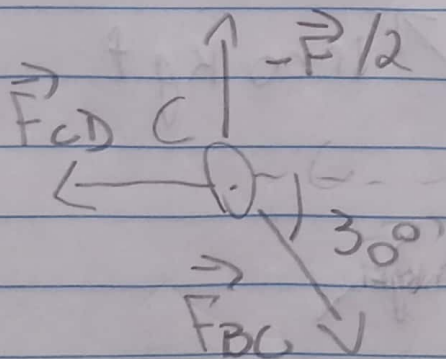 -F⃗/2
F⃗CD C
30°
F⃗BC